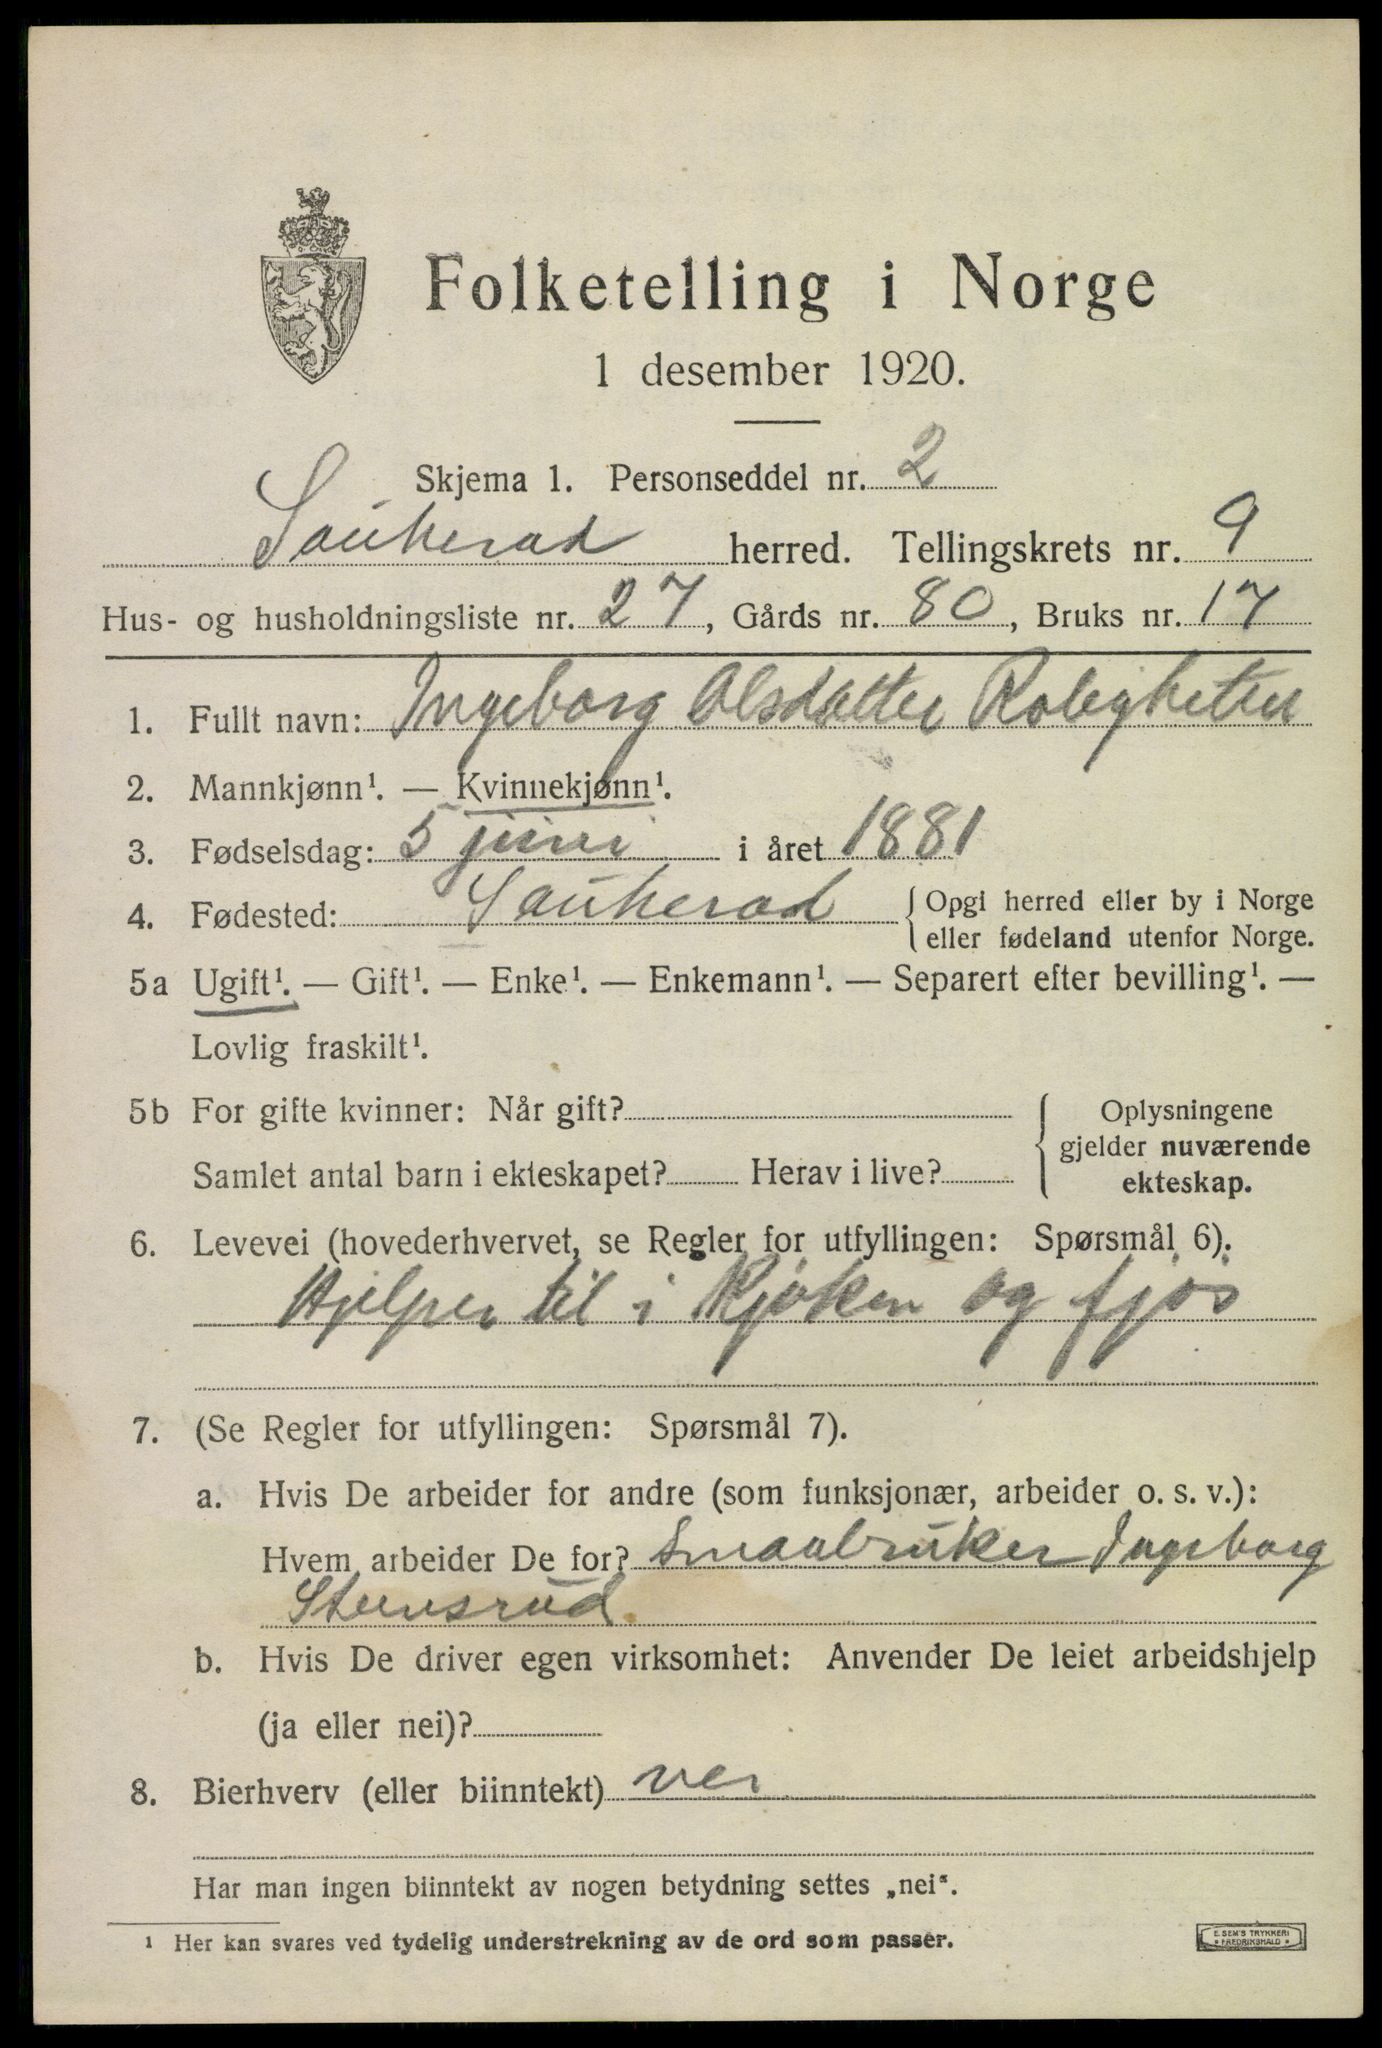 Folketelling i Norge
1 desember 1920.
Skjema 1. Personseddel nr. 2
Sauherad herred. Tellingskrets nr. 9
Hus- og husholdningsliste nr. 27, Gårds nr. 80, Bruks nr. 17
1. Fullt navn: Ingeborg Olsdatter Roligheten
2. Mannkjønn¹. — Kvinnekjønn¹.
3. Fødselsdag: 5 juni i året 1881
4. Fødested: Sauherad { Opgi herred eller by i Norge
eller fødeland utenfor Norge.
5a Ugift¹. — Gift¹. — Enke¹. — Enkemann¹. — Separert efter bevilling¹. —
Lovlig fraskilt¹.
5b For gifte kvinner: Når gift?
Samlet antal barn i ekteskapet? Herav i live?
{ Oplysningene
gjelder nuværende
ekteskap.
6. Levevei (hovederhvervet, se Regler for utfyllingen: Spørsmål 6).
Hjelper til i Kjøken og fjøs
7. (Se Regler for utfyllingen: Spørsmål 7).
a. Hvis De arbeider for andre (som funksjonær, arbeider o. s. v.):
Hvem arbeider De for? Smaabruker Ingeborg
Stensrud
b. Hvis De driver egen virksomhet: Anvender De leiet arbeidshjelp
(ja eller nei)?
8. Bierhverv (eller biinntekt) nei
Har man ingen biinntekt av nogen betydning settes „nei“.
¹ Her kan svares ved tydelig understrekning av de ord som passer.
E. SEM'S TRYKKERI
• FREDRIKSHALD •